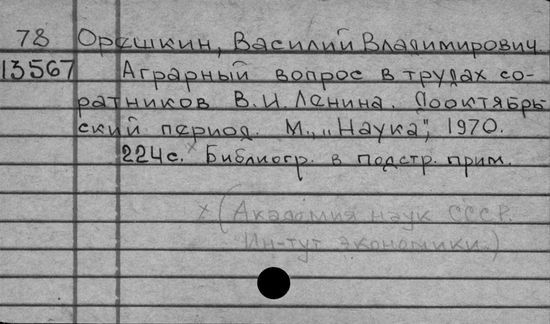 78 Орешкин, Василий Владимирович.
13567 Аграрный вопрос в трудах со-
ратников В.И. Ленина. Дооктябрь-
ский период. М., "Наука", 1970.
224с. Библиогр. в подстр. прим.
x (Академия наук СССР.
Ин-тут экономики.)